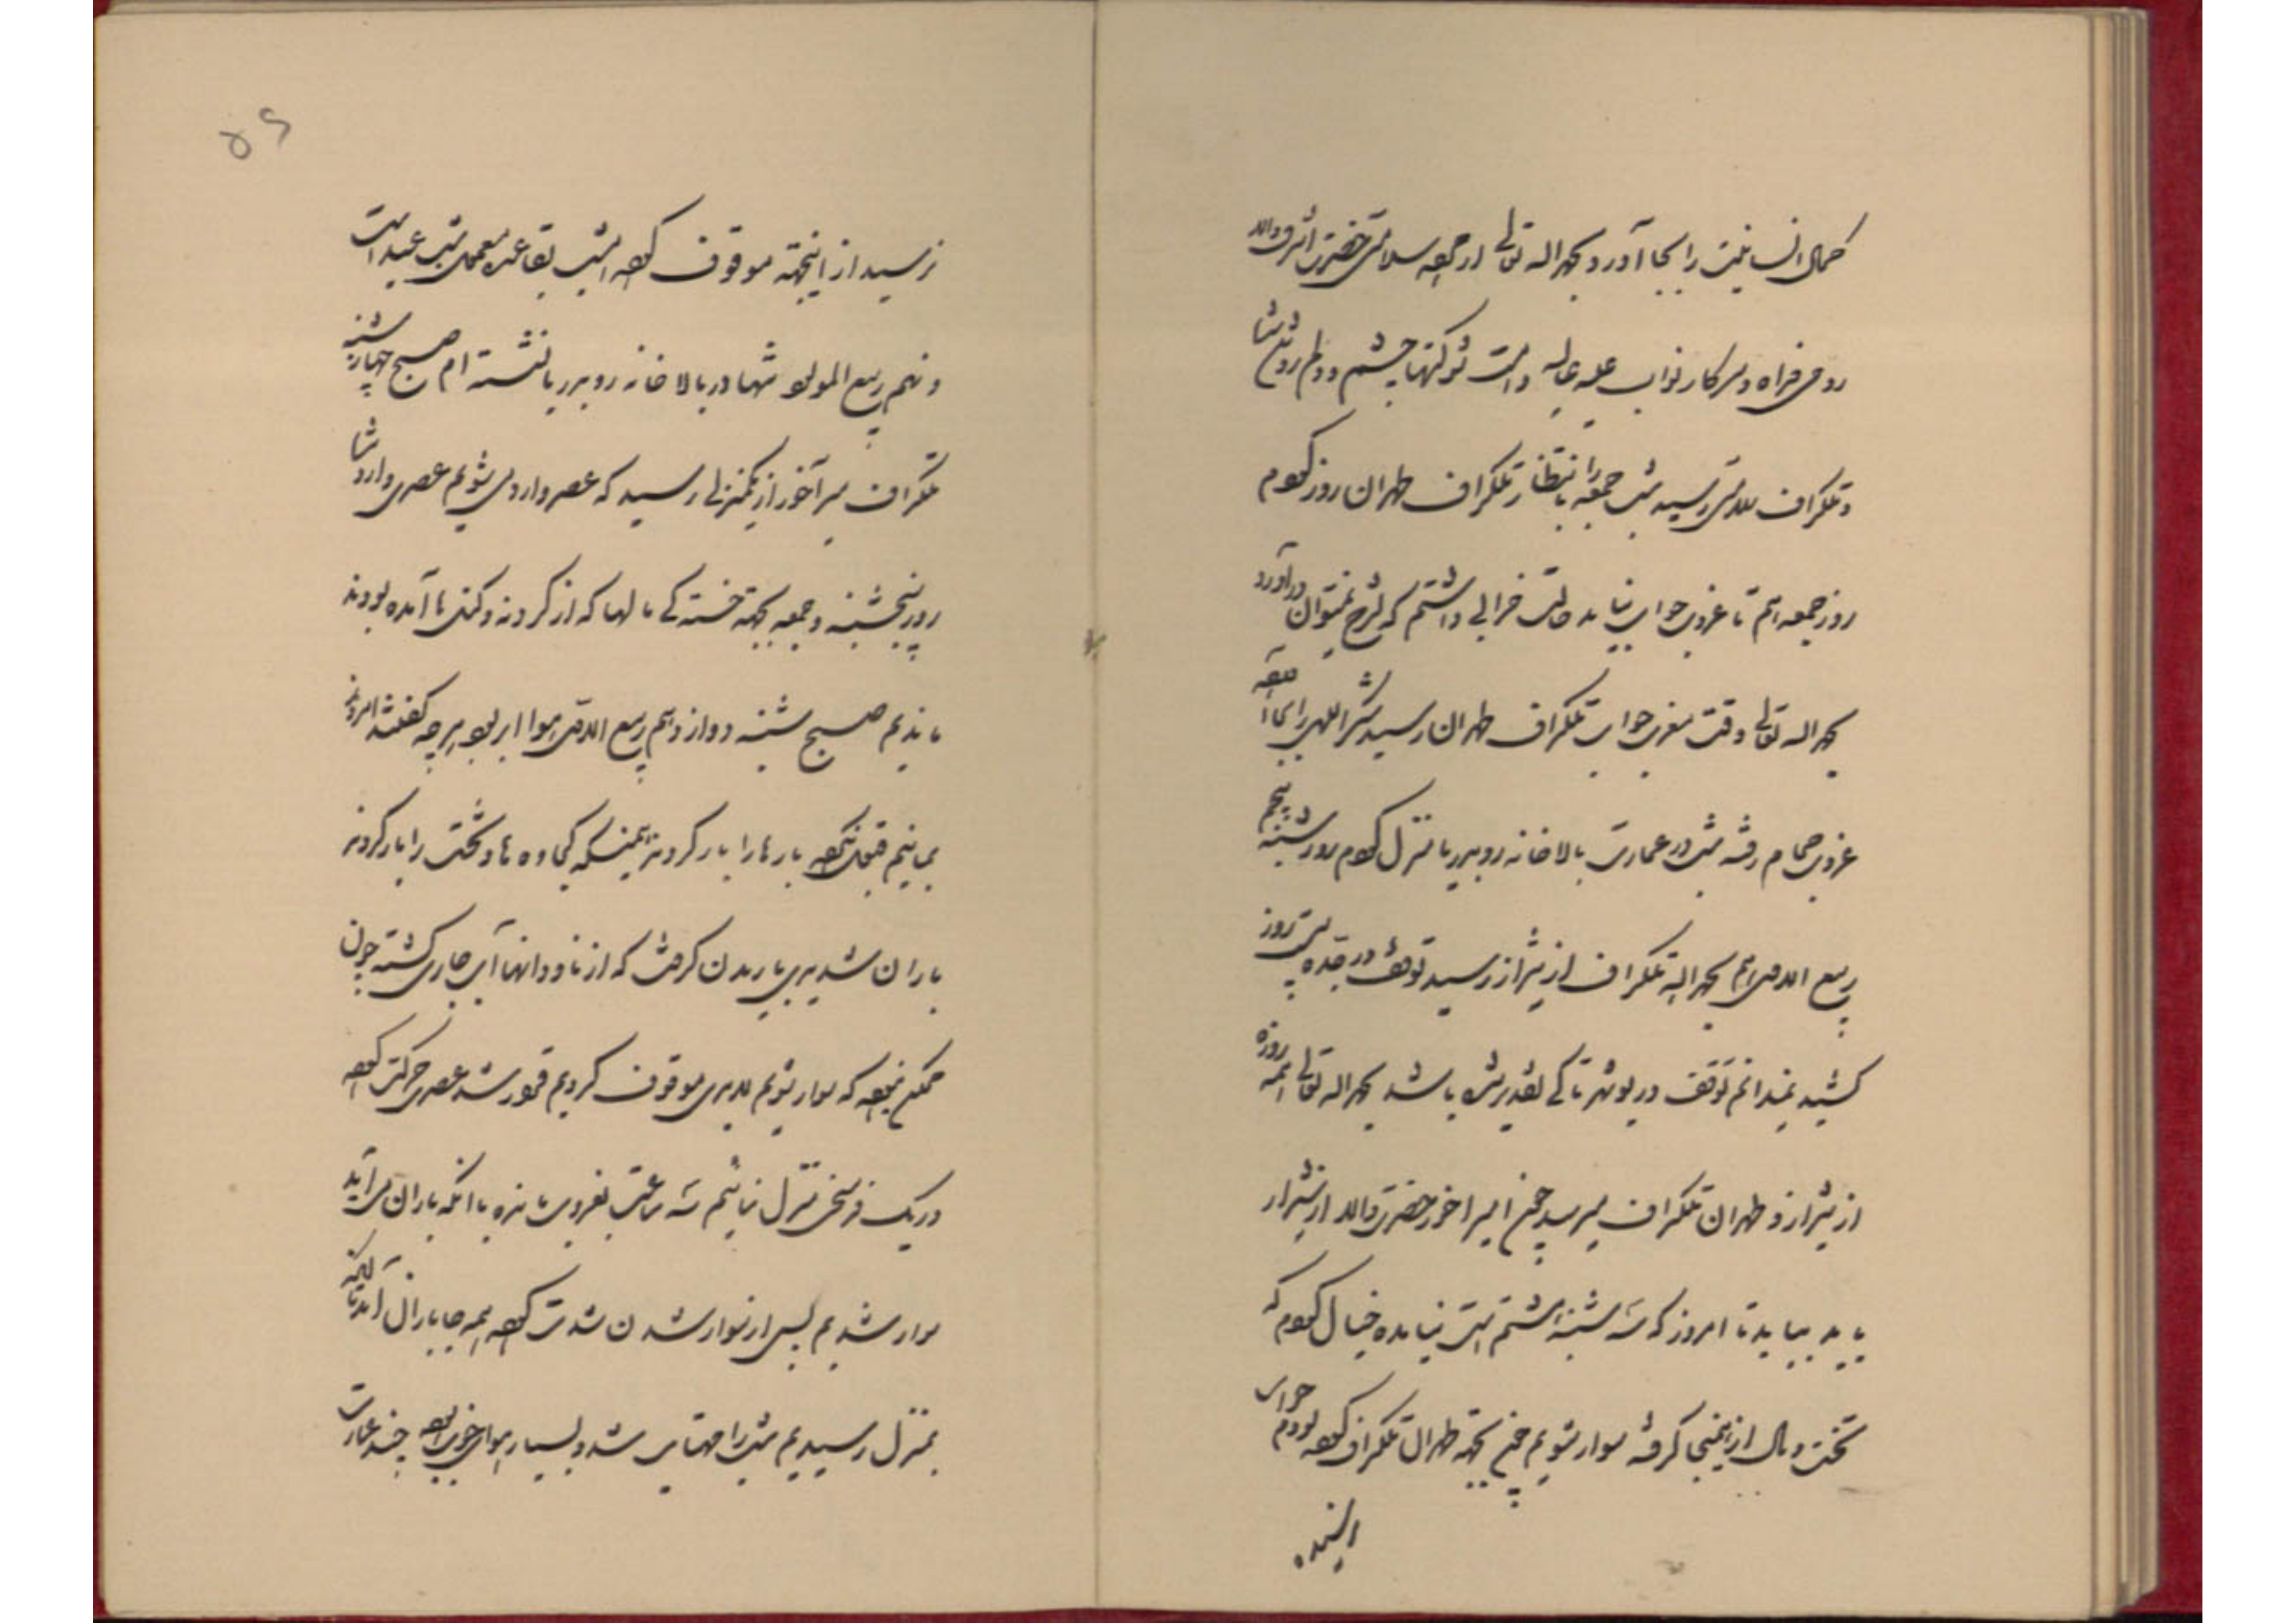 کمال انسانیت را بجا آورد بحمدالله تعالی از مژده سلامتی حضرت اشرف والد
روحی فداه و سرکار نواب علیه عالیه دامت شوکتها چشم و دلم روشن شد
و تلگراف سلامتی رسید شب جمعه را بانتظار تلگراف طهران روز کردم
روز جمعه هم تا غروب جواب نیامد حالت خرابی داشتم که بشرح نمیتوان درآورد
بحمدالله تعالی وقت مغرب جواب تلگراف طهران رسید شکر الهی را بجا آورده
غروب حمام رفته شب در عمارت بالاخانه رو بدریا منزل کردم روز شنبه پنجم
ربیع الثانی هم بحمدالله تلگراف از شیراز رسید توقف در جده بیست روز
کشید نمیدانم توقف در بوشهر تا کی تقدیر شده باشد بحمدالله تعالی همه روزه
از شیراز و طهران تلگراف میرسد چون امیرآخور حضرت والد از شیراز
باید بیاید تا امروز که سه شنبه هشتم است نیامده خیال کردم که
تخت و مال از اینجا گرفته سوار شویم چون بجهة طهران تلگراف کرده بودم جواب
اینده
۵۶
نرسید از اینجهة موقوف کرده امشب بقاعده معمول شب عید است
و نهم ربیع المولود تنها در بالاخانه رو بدریا نشسته ام صبح چهارشنبه
تلگراف میرآخور از یکمنزلی رسید که عصر وارد می شویم عصری وارد شد
روز پنجشنبه و جمعه بجهة خستگی مالها که از گردنه و کتل ها آمده بودند
ماندیم صبح شنبه دوازدهم ربیع الثانی هوا ابر بود هرچه گفتند امروز
بمانیم قبول نکرده بارها را بار کردند همینکه کجاوه ها و تخت را بار کردند
باران شدیدی باریدن گرفت که از ناودانها آب جاری گشته چون
ممکن نبود که سوار شویم لابدی موقوف کردیم قرار شد عصری حرکت کرده
در یک فرسخی منزل نمائیم سه ساعت بغروب مانده با آنکه باران می آید
سوار شدیم پس از سوار شدن شدت کرده همه جا باران آمد تا اینکه
بمنزل رسیدیم شب را مهتاب شد و بسیار هوای خوبی بود چند عمارت